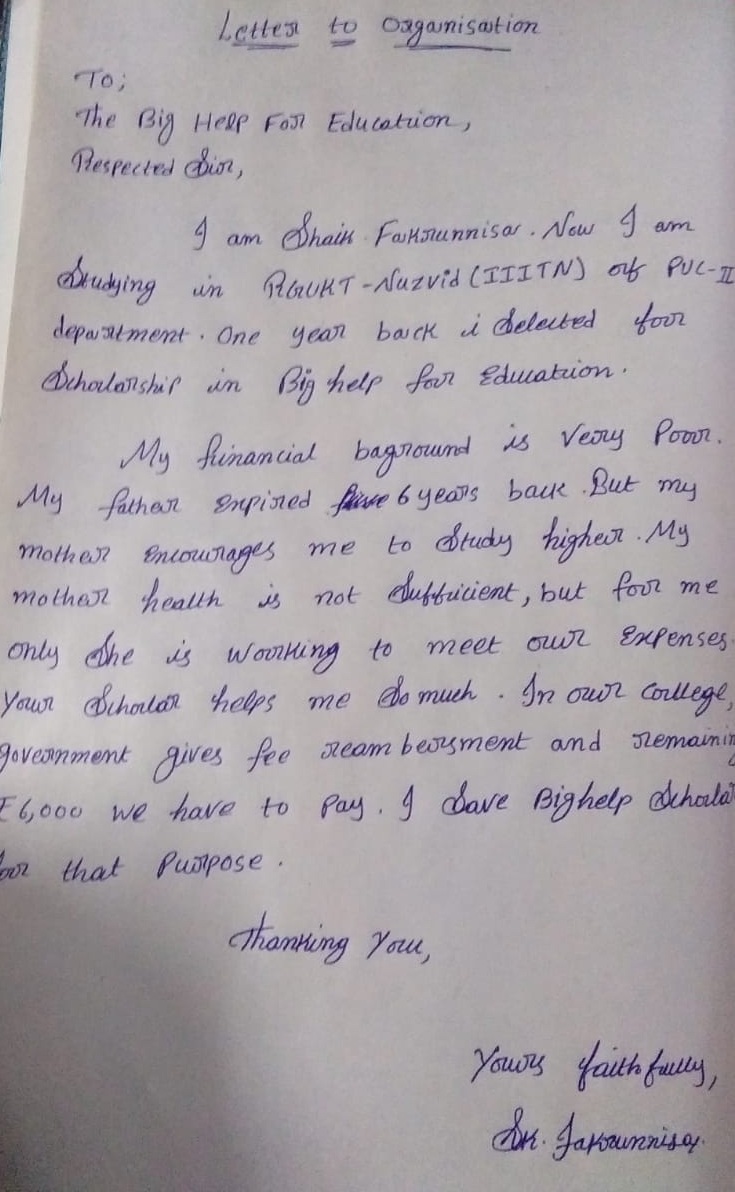 Letter to Organisation
To;
The Big Help For Education,
Respected Sir,
I am Shaik Fakrunnisa. Now I am
Studying in RGUKT-Nuzvid (IIITN) of PUC-II
department. One year back i Selected for
Scholarship in Big help for Education.
My financial baground is Very Poor.
My father expired five 6 years back. But my
mother encourages me to Study higher. My
mother health is not Sufficient, but for me
only She is working to meet our Expenses
Your Scholar helps me So much. In our College,
government gives fee reambersment and remainin
₹6,000 we have to Pay. I Save Bighelp Schola
for that Purpose.
Thanking You,
Yours faithfully,
Sk. Fakrunnisa.